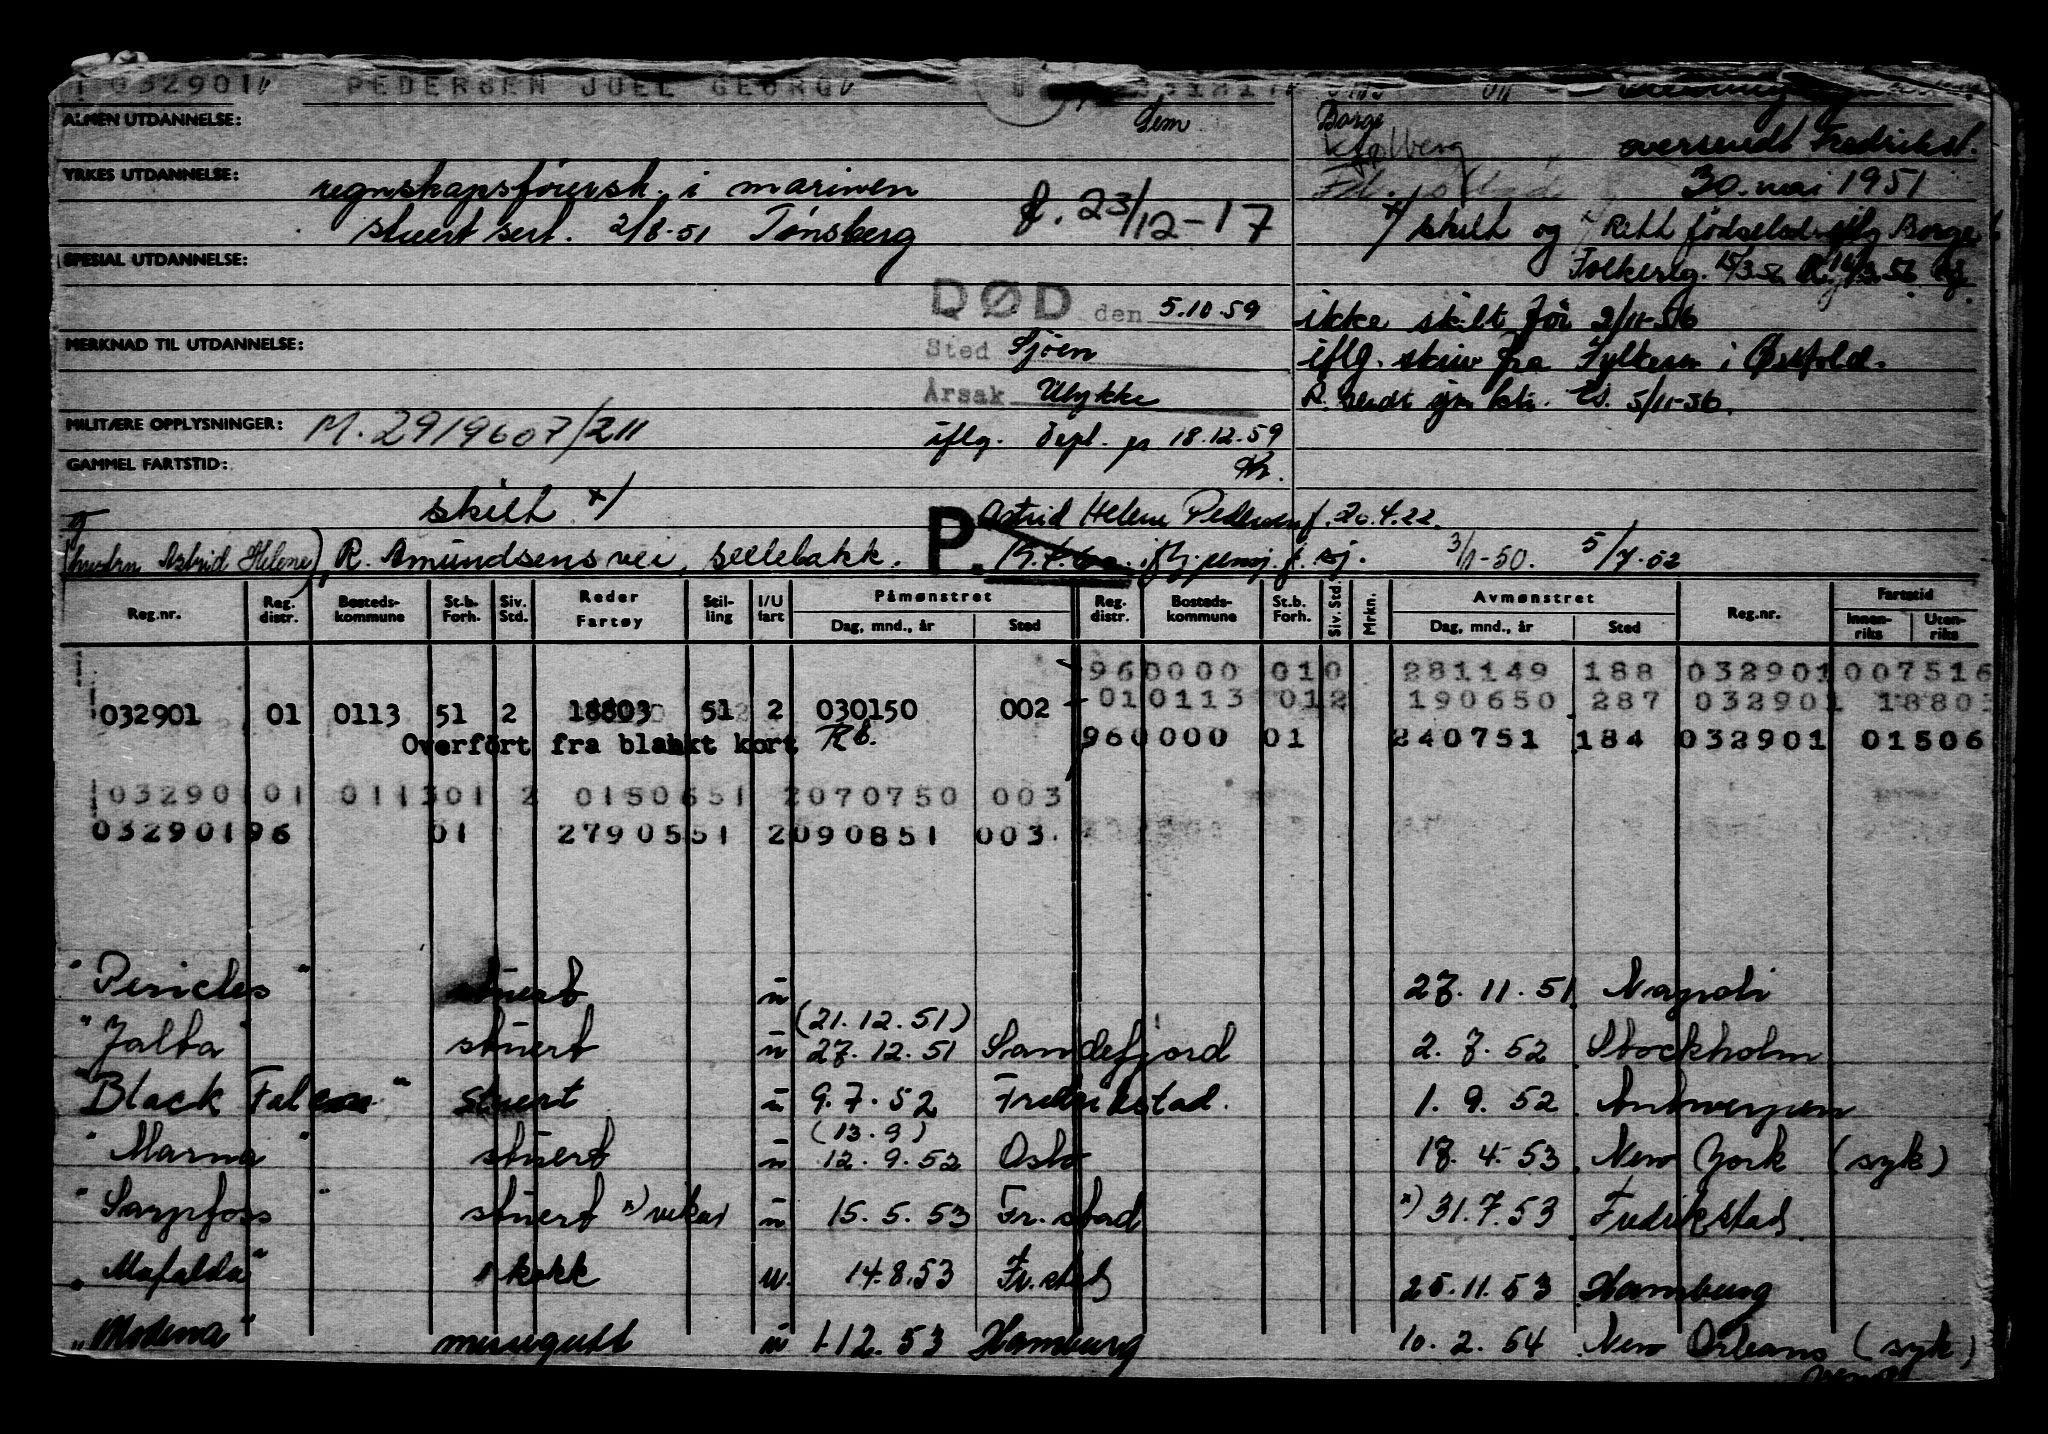 032901 PEDERSEN JOEL GEORG
ALMEN UTDANNELSE: Sem Borge
Kjølberg oversendt Fredrikst.
YRKES UTDANNELSE: regnskapsførersk. i marinen 30. mai 1951
stuert sert. 2/8-51 Tønsberg f. 23/12-17 x/ skilt og Rett fødselsd. iflg Borge
SPESIAL UTDANNELSE: Folkereg. 15/3.56
DØD den 5.10.59 ikke skilt før 2/11-56
MERKNAD TIL UTDANNELSE: Sted Sjøen iflg. skriv fra Fylkesm i Østfold.
Årsak Ulykke R. sendt 5/11-56.
MILITÆRE OPPLYSNINGER: M. 2919607/211 iflg. Depl. 18.12.59
GAMMEL FARTSTID:
skilt x/ P. Astrid Helene Pedersen f. 20.4.22.
(hustru Astrid Helene) R. Amundsens vei, sellebakk. 3/1-50. 5/7-52
Reg.nr. Reg. distr. Bosteds-kommune St.b. Forh. Siv. Std. Reder Fartøy Stil-ling I/U fart Påmønstret Dag, mnd., år Sted Reg. distr. Bosteds-kommune St.b. Forh. Siv. Std. Mrkn. Avmønstret Dag, mnd., år Sted Reg.nr. Fartstid Innen-riks Uten-riks
960000 010 281149 188 032901 007516
010113 012 190650 287 032901 1880
032901 01 0113 51 2 18803 51 2 030150 002
Overført fra blankt kort 960000 01 240751 184 032901 01506
032901 01 0113 01 2 01506 51 2 070750 003
032901 96 01 27905 51 2 090851 003
"Pericles" stuert u 27.11.51 Napoli
"Jalta" stuert u (21.12.51) 27.12.51 Sandefjord 2.7.52 Stockholm
"Black Falcon" stuert u 9.7.52 Fredrikstad. 1.9.52 Antwerpen
"Marna" stuert u (13.9) 12.9.52 Oslo 18.4.53 New York (syk)
"Sarpfoss" stuert x) vikar u 15.5.53 Fr.stad x) 31.7.53 Fredrikstad
"Mafalda" kokk u. 14.8.53 Fr.stad 25.11.53 Hamburg
"Modena" messegutt u 1.12.53 Hamburg 10.2.54 New Orleans (syk)